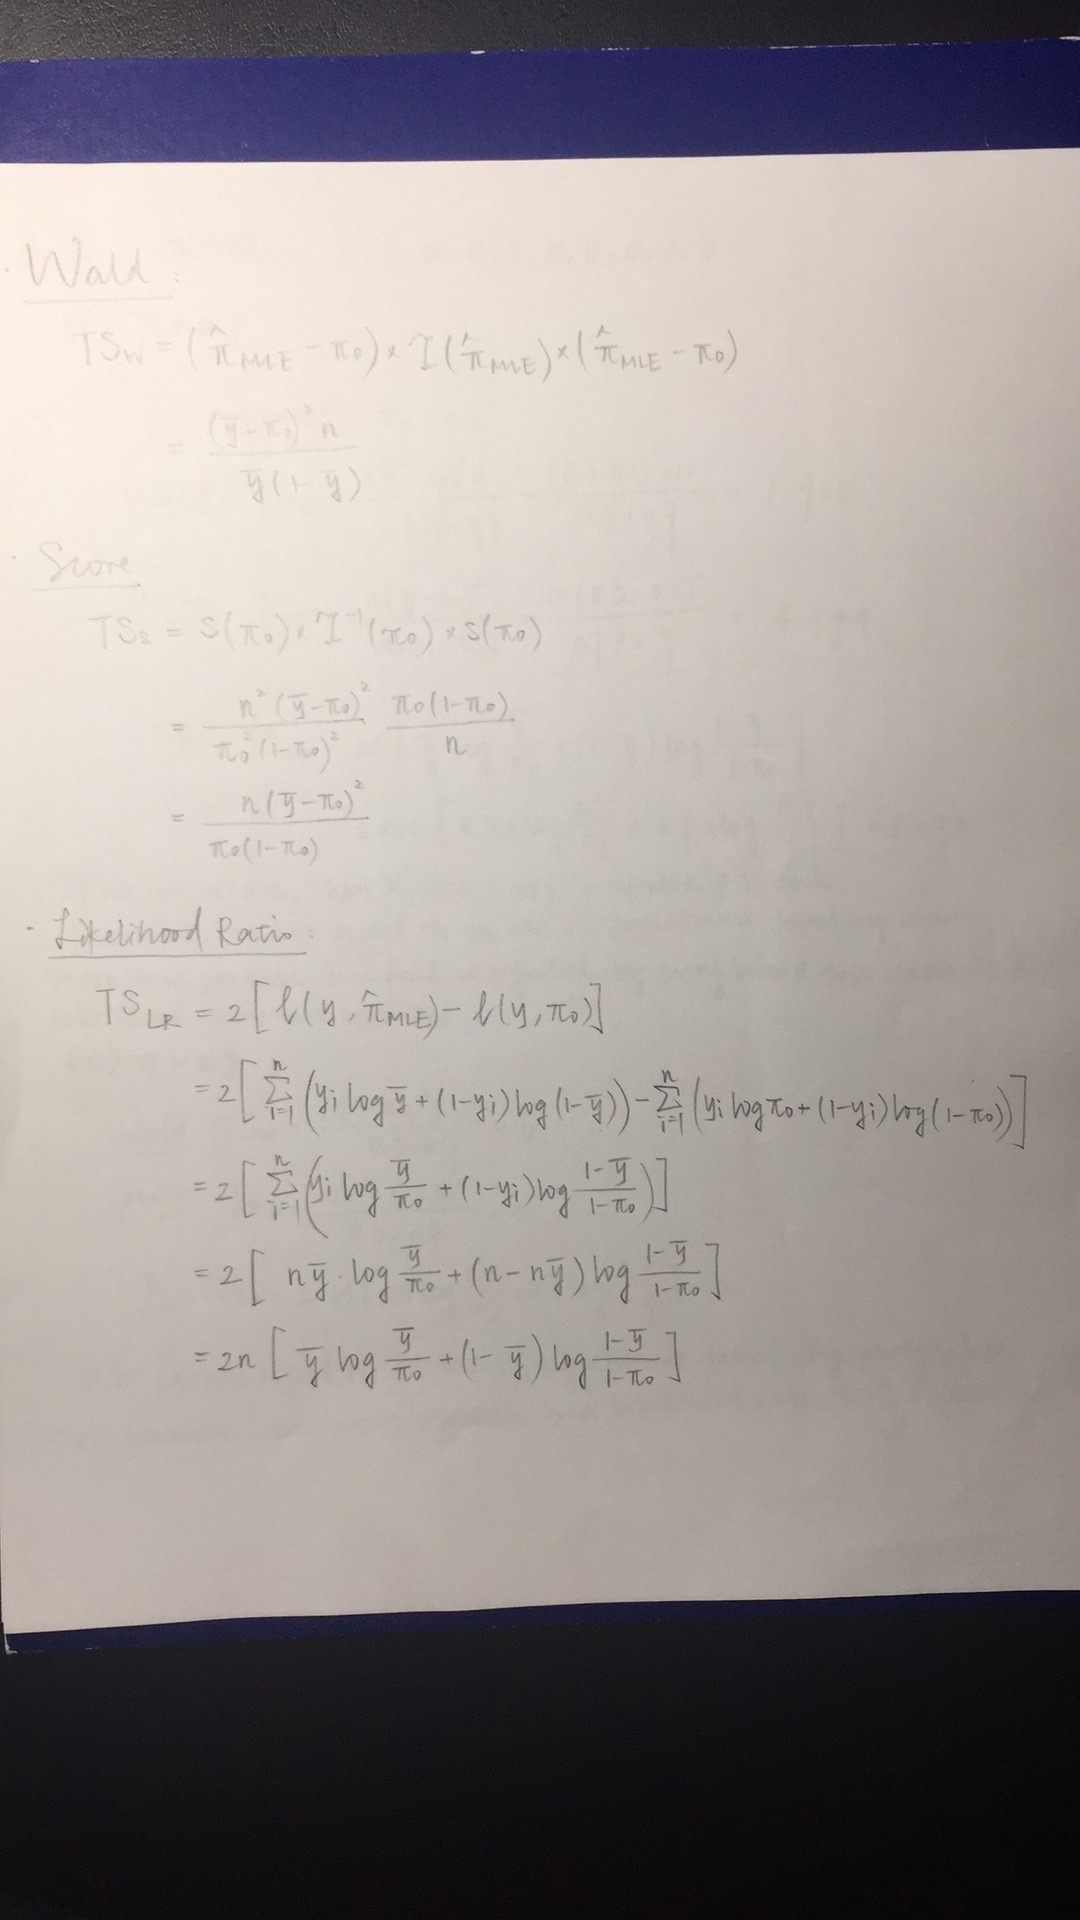 · Wald :
TS_W = (π̂_MLE − π₀) × I(π̂_MLE) × (π̂_MLE − π₀)
= (ȳ − π₀)² n / ȳ(1 − ȳ)
· Score
TS_S = S(π₀) × I⁻¹(π₀) × S(π₀)
= n²(ȳ − π₀)² / π₀²(1 − π₀)² π₀(1 − π₀) / n
= n(ȳ − π₀)² / π₀(1 − π₀)
· Likelihood Ratio :
TS_LR = 2[ℓ(y, π̂_MLE) − ℓ(y, π₀)]
= 2[∑_{i=1}^{n} (yᵢ log ȳ + (1 − yᵢ) log(1 − ȳ)) − ∑_{i=1}^{n} (yᵢ log π₀ + (1 − yᵢ) log(1 − π₀))]
= 2[∑_{i=1}^{n} (yᵢ log ȳ/π₀ + (1 − yᵢ) log (1 − ȳ)/(1 − π₀))]
= 2[nȳ · log ȳ/π₀ + (n − nȳ) log (1 − ȳ)/(1 − π₀)]
= 2n[ȳ log ȳ/π₀ + (1 − ȳ) log (1 − ȳ)/(1 − π₀)]